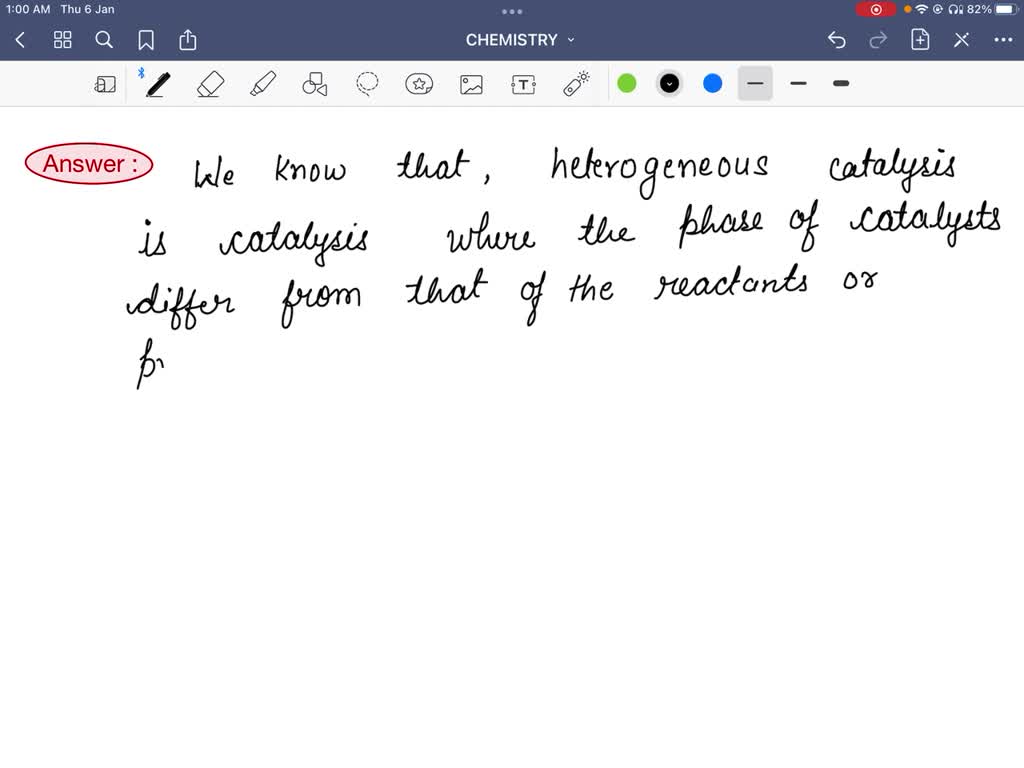 1:00 AM Thu 6 Jan
82%
CHEMISTRY
T
Answer :
We know that, heterogeneous catalysis
is catalysis where the phase of catalysts
differ from that of the reactants or
pr